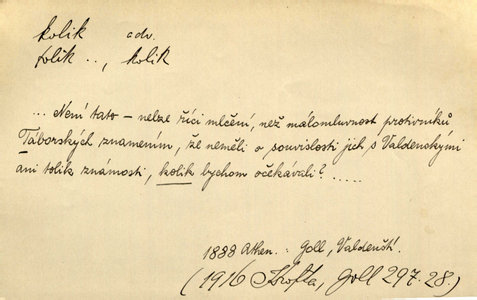 kolik adv.
tolik .., kolik
... Není tato – nelze říci mlčení, než málomluvnost protivníků
Táborských znamením, že neměli o souvislosti jich s Valdenskými
ani tolik známosti, kolik bychom očekávali? .....
1888 Athen. : Goll, Valdenští.
(1916 Krofta, Goll 297.28.)